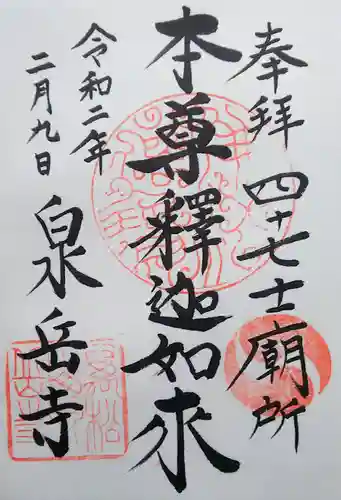 奉拝
四十七士廟所
本尊釋迦如来
令和二年
二月九日
泉岳寺